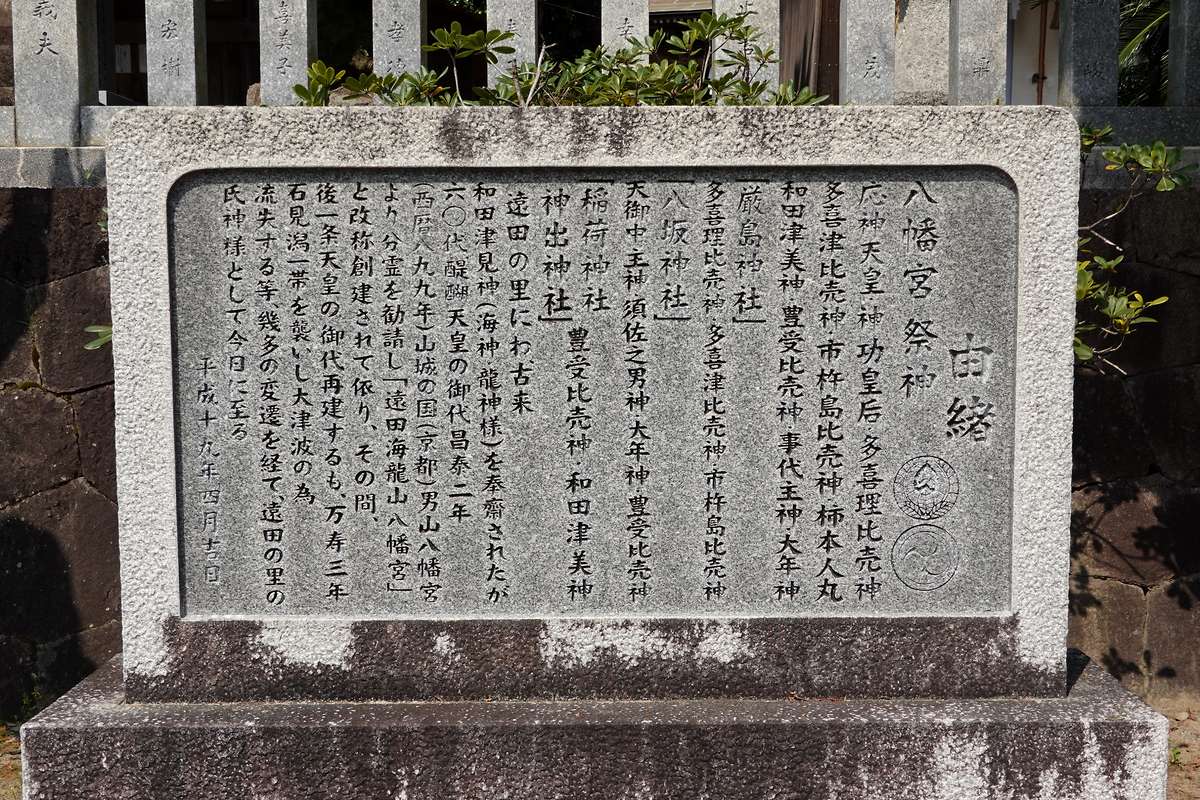 由緒
八幡宮祭神
応神天皇 神功皇后 多喜理比売神
多喜津比売神 市杵島比売神 柿本人丸
和田津美神 豊受比売神 事代主神 大年神
「厳島神社」
多喜理比売神 多喜津比売神 市杵島比売神
「八坂神社」
天御中主神 須佐之男神 大年神 豊受比売神
「稲荷神社
神出神社」
豊受比売神・和田津美神
遠田の里にわ、古来
和田津見神(海神・龍神様)を奉齋されたが
六〇代醍醐天皇の御代昌泰二年
(西暦八九九年)山城の国(京都)男山八幡宮
より分霊を勧請し「遠田海龍山八幡宮」
と改称創建されて依り、その間、
後一条天皇の御代再建するも、万寿三年
石見潟一帯を襲いし大津波の為
流失する等、幾多の変遷を経て、遠田の里の
氏神様として今日に至る
平成十九年四月吉日
義夫
宏樹
喜美子
孝
茂